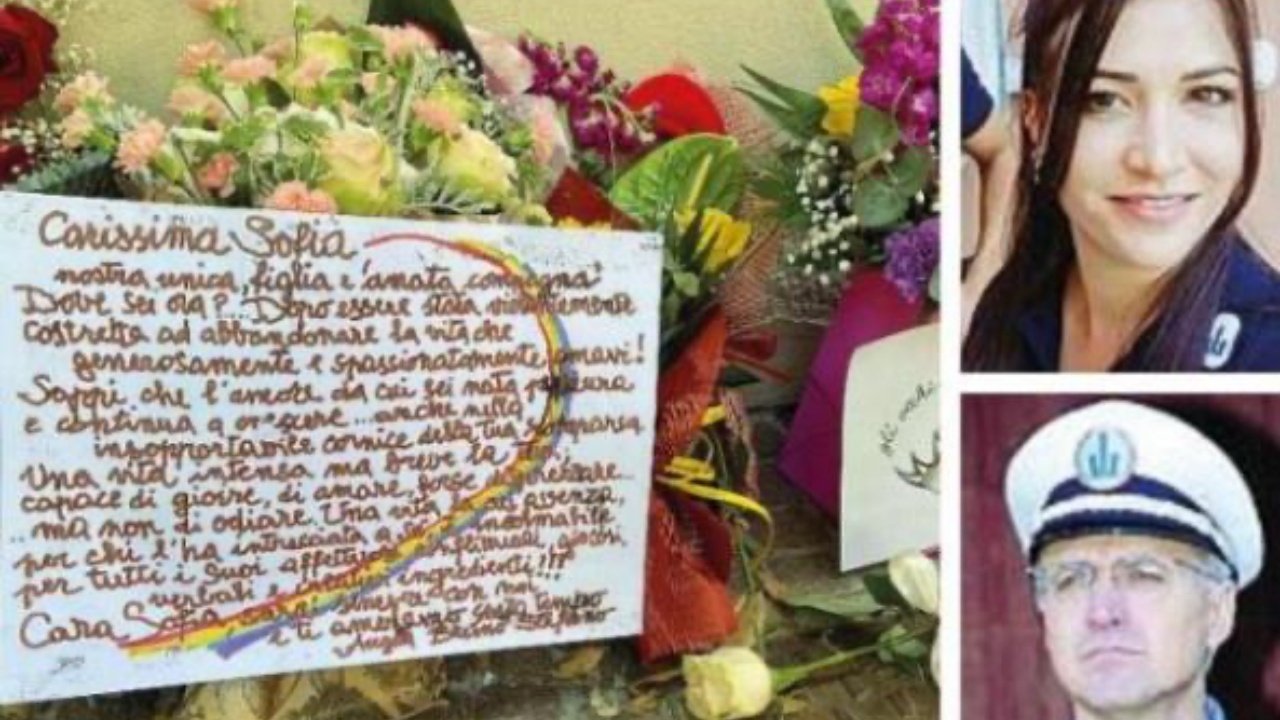 Carissima Sofia
nostra unica, figlia e amata compagna
Dove sei ora?... Dopo essere stata violentemente
costretta ad abbandonare la vita che
generosamente e spassionatamente amavi!
Sappi che l'amore da cui sei nata perdura
e continua a crescere ... anche nella
insopportabile cornice della tua scomparsa
Una vita intensa ma breve la tua,
capace di gioire, di amare, forse di
..ma non di odiare. Una vita assenza,
per chi l'ha intrecciata a insolmabile
per tutti i suoi affettuosi complimenti, giocosi,
verbali e ingredienti!!!
Cara Sofia, sempre con noi
e ti ameremo senza tempo
Bruno Stefano